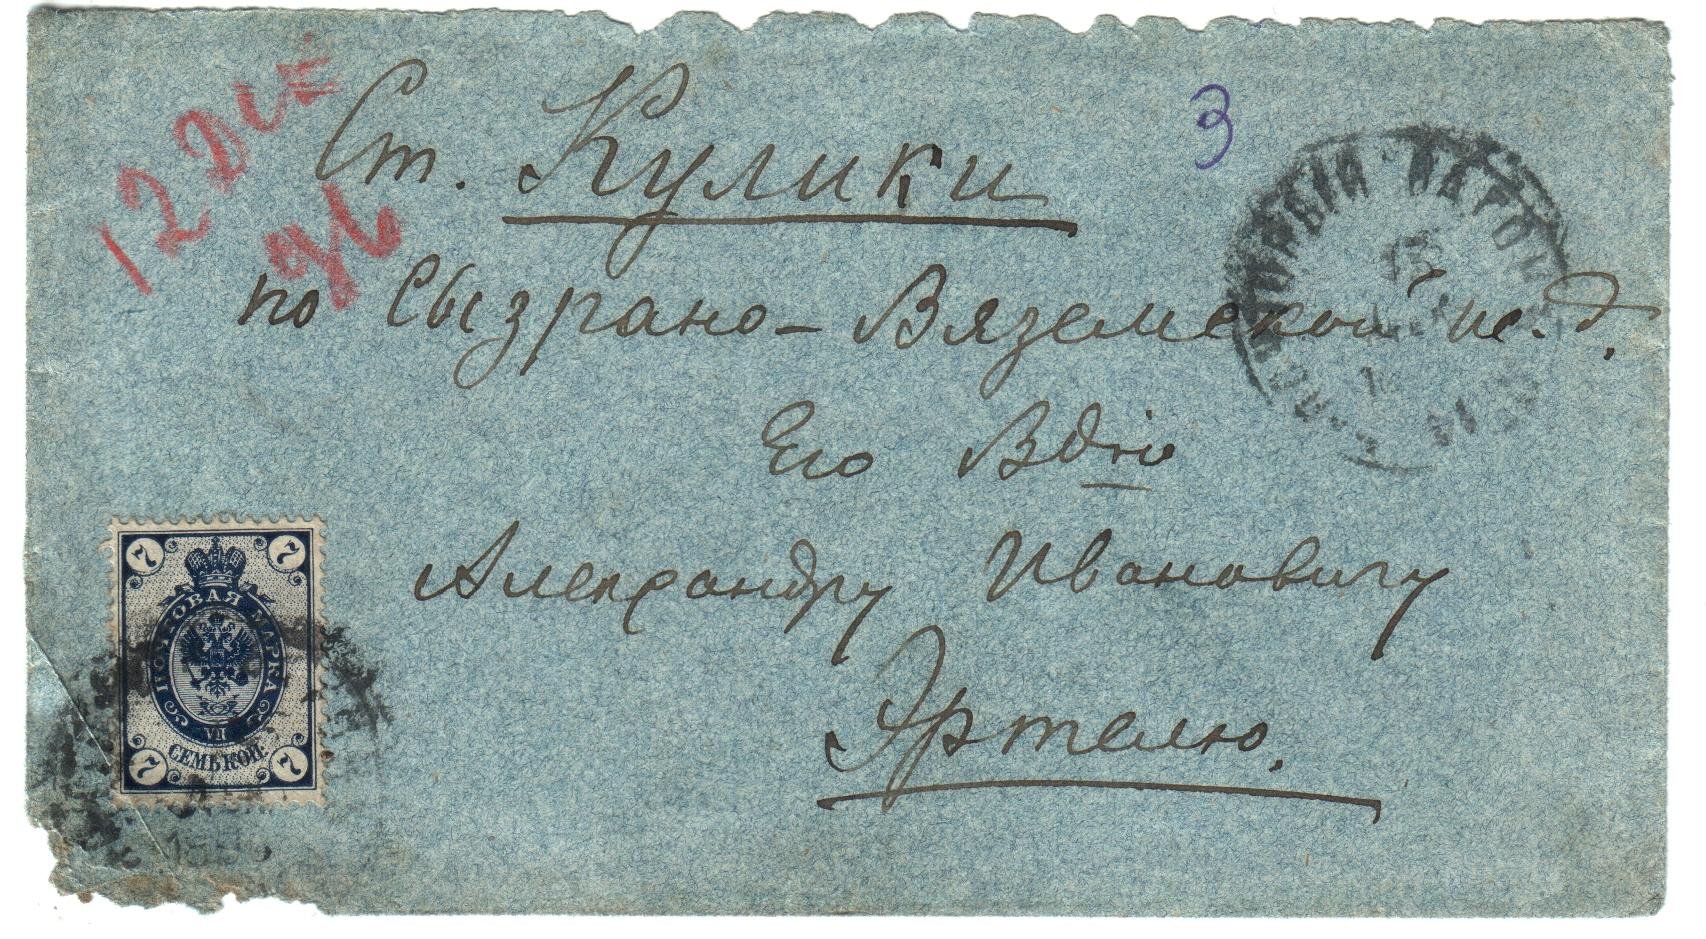 12 ДЕК
96
3
Ст. Кулики
по Сызрано-Вяземской ж. д.
Его Вдію
Александру Ивановичу
Эртелю.
ПОЧТОВЫЙ ВАГОН
7 7
ПОЧТОВАЯ МАРКА
СЕМЬ КОП.
7 7